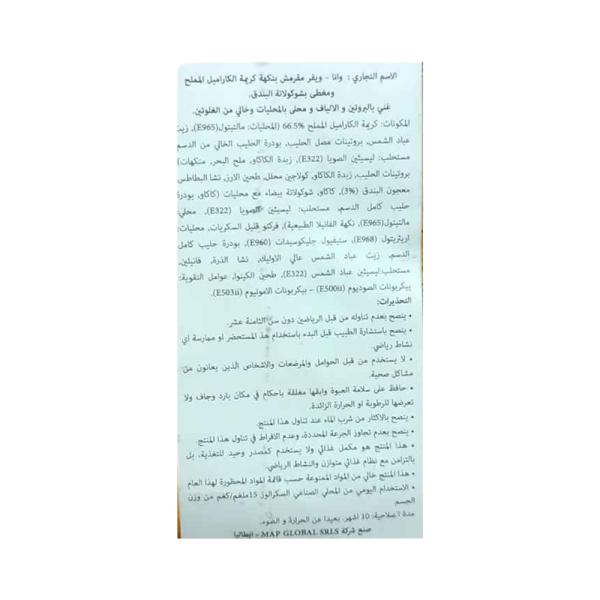 الاسم التجاري : وانا - ويفر مقرمش بنكهة كريمة الكاراميل المملح
ومغطى بشوكولاتة البندق.
غني بالبروتين و الالياف و محلى بالمحليات وخالي من الغلوتين.
المكونات: كريمة الكاراميل المملح 66.5% (المحليات: مالتيتول(E965), زيت
عباد الشمس, بروتينات مصل الحليب, بودرة الحليب الخالي من الدسم
مستحلب: ليسيثين الصويا (E322), زبدة الكاكاو, ملح البحر, منكهات)
بروتينات الحليب, زبدة الكاكاو, كولاجين محلل, طحين الارز, نشا البطاطس
معجون البندق (3%), كاكاو, شوكولاتة بيضاء مع محليات (كاكاو, بودرة
حليب كامل الدسم, مستحلب: ليسيثين الصويا (E322), محلي:
مالتيتول(E965), نكهة الفانيلا الطبيعية), فركتو قليل السكريات, محليات:
اريثريتول (E968), ستيفيول جليكوسيدات (E960), بودرة حليب كامل
الدسم, زيت عباد الشمس عالي الاوليك, نشا الذرة, فانيلين,
مستحلب:ليسيثين عباد الشمس (E322), طحين الكينوا, عوامل التقوية:
بيكربونات الصوديوم (E500ii) – بيكربونات الامونيوم (E503ii).
التحذيرات:
• ينصح بعدم تناوله من قبل الرياضين دون سن الثامنة عشر.
• ينصح باستشارة الطبيب قبل البدء باستخدام هذ المستحضر او ممارسة أي
نشاط رياضي.
• لا يستخدم من قبل الحوامل والمرضعات والاشخاص الذين يعانون من
مشاكل صحية.
• حافظ على سلامة العبوة وابقها مغلقة باحكام في مكان بارد وجاف ولا
تعرضها للرطوبة او الحرارة الزائدة.
• ينصح بالاكثار من شرب الماء عند تناول هذا المنتج.
• ينصح بعدم تجاوز الجرعة المحددة, وعدم الافراط في تناول هذا المنتج
• هذا المنتج هو مكمل غذائي ولا يستخدم كمصدر وحيد للتغذية, بل
بالتزامن مع نظام غذائي متوازن والنشاط الرياضي.
• هذا المنتج خالي من المواد الممنوعة حسب قائمة المواد المحظورة لهذا العام
• الاستخدام اليومي من المحلي الصناعي السكرالوز 15ملغم/كغم من وزن
الجسم
مدة الصلاحية: 10 اشهر. بعيدا عن الحرارة و الضوء.
صنع شركة MAP GLOBAL SRLS – ايطاليا